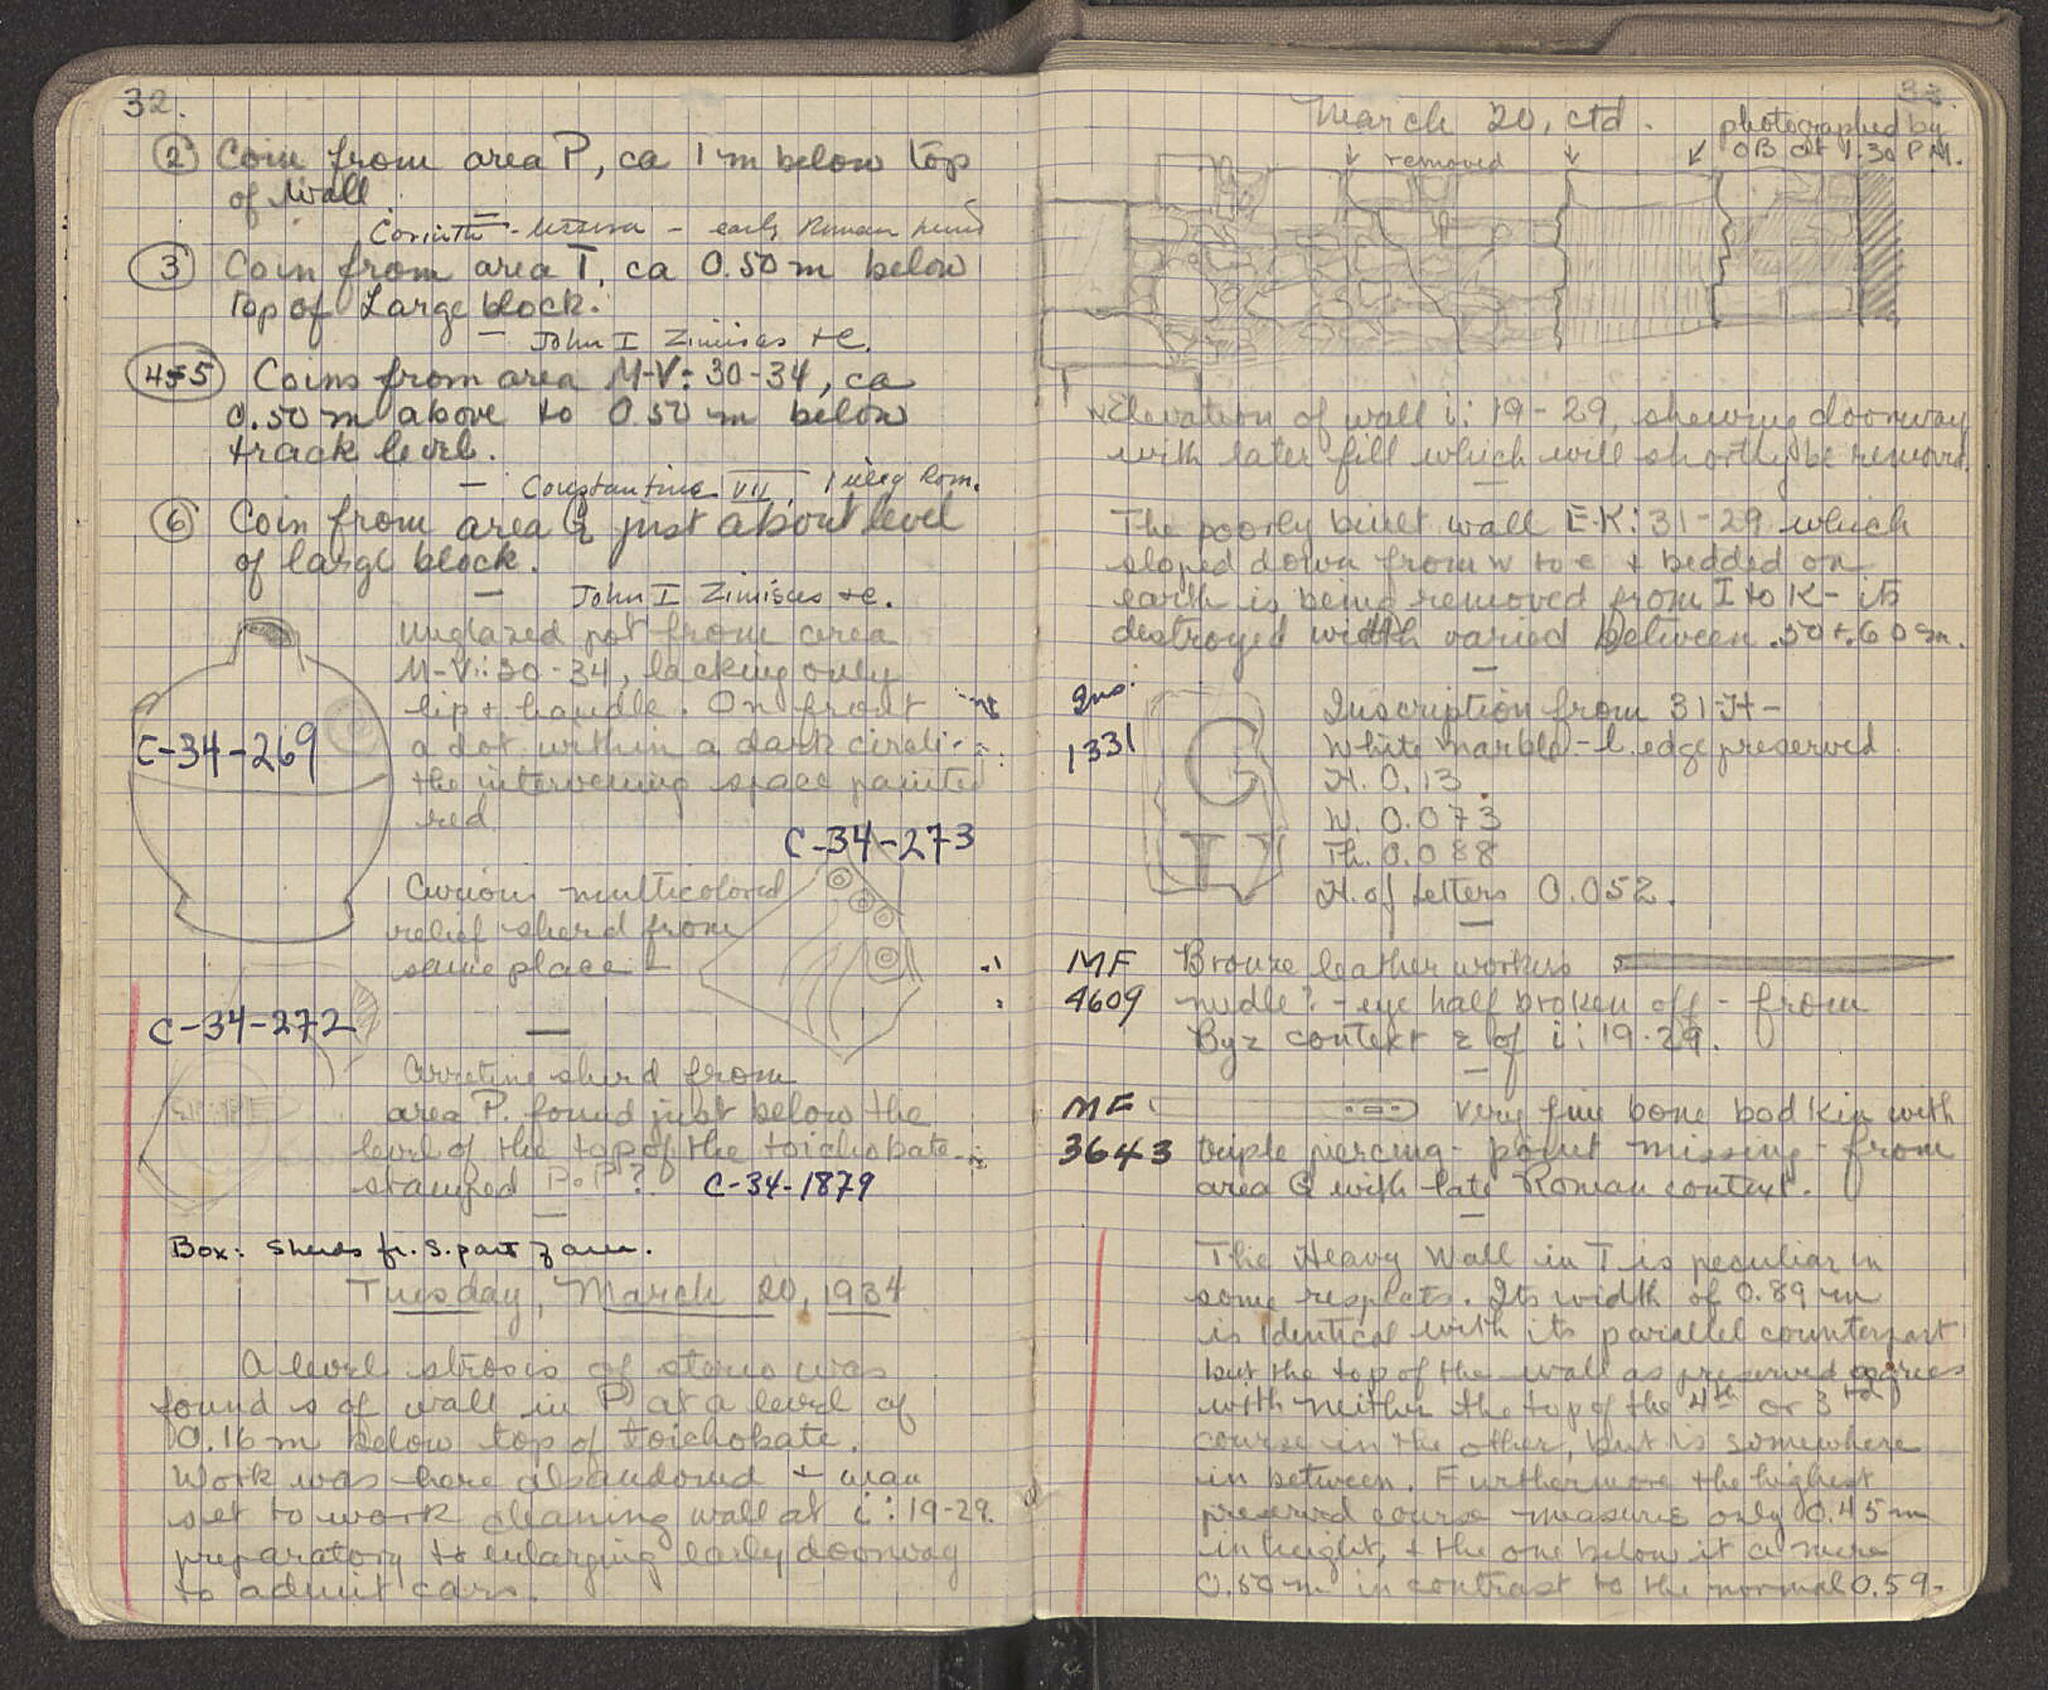 32.
② Coin from area P, ca 1 m below top
of Wall
Corinth - early Roman
③ Coin from area T, ca 0.50 m below
top of Large block.
— John I Zimisces +C.
4+5 Coins from area M-V: 30-34, ca
0.50 m above to 0.50 m below
track level.
— Constantine VII, 1 illeg Rom.
⑥ Coin from area just about level
of large block.
— John I Zimisces +C.
Unglazed pot from area
M-V: 30-34, lacking only
lip + handle. On front
a dot within a dark circle;
the intervening space painted
red
C-34-269
C-34-273
Curious multicolored
relief sherd from
same place —
C-34-272
Arretine sherd from
area P. found just below the
level of the top of the toichobate
stamped P.P? C-34-1879
Box: Sherds fr. S. part of area.
Tuesday, March 20, 1934
A level strosis of stereo was
found s of wall in P at a level of
0.16 m below top of toichobate.
Work was here abandoned + man
set to work cleaning wall at i: 19-29.
preparatory to enlarging early doorway
to admit cars.
33.
March 20, ctd.
photographed by
OB at 1.30 P.M.
removed
Elevation of wall i: 19-29, shewing doorway
with later fill which will shortly be removed.
The poorly built wall E-K: 31-29 which
sloped down from w to e + bedded on
earth is being removed from I to K - its
destroyed width varied between .50 + .60 m.
Ins.
1331
Inscription from 31-H -
White marble - l. edge preserved.
H. 0.13
W. 0.073
Th. 0.088
H. of letters 0.052.
MF
4609
Bronze leather workers
needle? - eye half broken off - from
Byz context E of i: 19-29.
MF
3643
Very fine bone bodkin with
triple piercing - point missing - from
area G with late Roman context.
The Heavy Wall in T is peculiar in
some respects. Its width of 0.89 m
is identical with its parallel counterpart
but the top of the wall as preserved agrees
with neither the top of the 4th or 3rd
course in the other, but is somewhere
in between. Furthermore the highest
preserved course measures only 0.45 m
in height, + the one below it a mere
0.50 m in contrast to the normal 0.59.